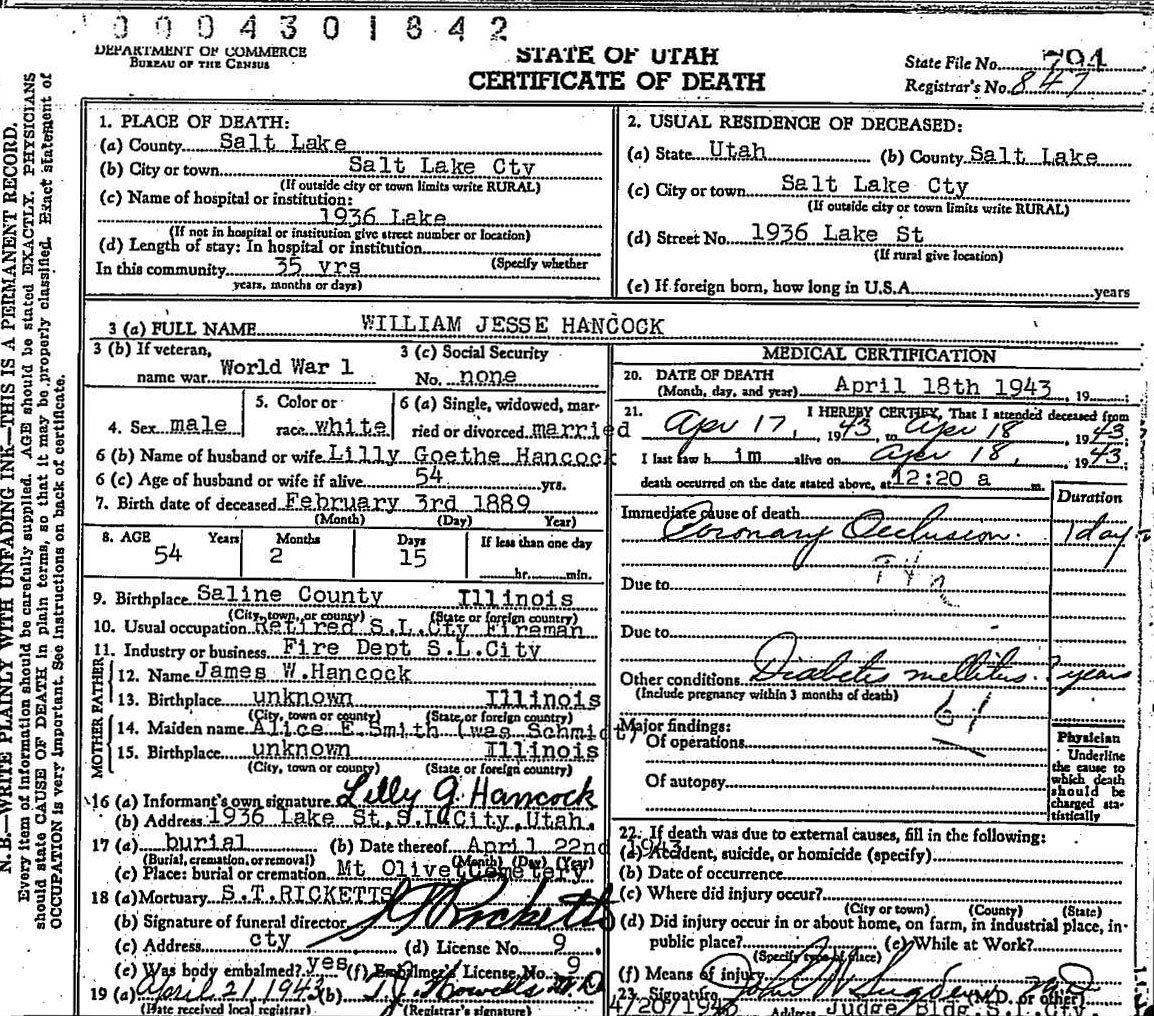 0004301842
DEPARTMENT OF COMMERCE
BUREAU OF THE CENSUS
STATE OF UTAH
CERTIFICATE OF DEATH
State File No. 794
Registrar's No. 847
N. B.—WRITE PLAINLY WITH UNFADING INK—THIS IS A PERMANENT RECORD.
Every item of information should be carefully supplied. AGE should be stated EXACTLY. PHYSICIANS
should state CAUSE OF DEATH in plain terms, so that it may be properly classified. Exact statement of
OCCUPATION is very important. See instructions on back of certificate.
1. PLACE OF DEATH:
(a) County Salt Lake
(b) City or town Salt Lake Cty
(If outside city or town limits write RURAL)
(c) Name of hospital or institution:
1936 Lake
(If not in hospital or institution give street number or location)
(d) Length of stay: In hospital or institution
(Specify whether
In this community 35 yrs
years, months or days)
2. USUAL RESIDENCE OF DECEASED:
(a) State Utah (b) County Salt Lake
(c) City or town Salt Lake Cty
(If outside city or town limits write RURAL)
(d) Street No. 1936 Lake St
(If rural give location)
(e) If foreign born, how long in U.S.A. years
3 (a) FULL NAME WILLIAM JESSE HANCOCK
3 (b) If veteran,
name war World War 1
3 (c) Social Security
No. none
4. Sex male
5. Color or
race white
6 (a) Single, widowed, mar-
ried or divorced married
6 (b) Name of husband or wife Lilly Goethe Hancock
6 (c) Age of husband or wife if alive 54 yrs.
7. Birth date of deceased February 3rd 1889
(Month) (Day) Year)
8. AGE Years Months Days If less than one day
54 2 15
hr. min.
9. Birthplace Saline County Illinois
(City, town, or county) (State or foreign country)
10. Usual occupation Retired S.L.Cty Fireman
11. Industry or business Fire Dept S.L.City
FATHER
12. Name James W.Hancock
13. Birthplace unknown Illinois
(City, town or county) (State or foreign country)
MOTHER
14. Maiden name Alice E Smith (was Schmidt)
15. Birthplace unknown Illinois
(City, town or county) (State or foreign country)
16 (a) Informant's own signature Lilly G Hancock
(b) Address 1936 Lake St,S.L.City,Utah.
17 (a) burial (b) Date thereof April 22nd 1943
(Burial, cremation, or removal) (Month) (Day) (Year)
(c) Place: burial or cremation Mt Olivet Cemetery
18 (a) Mortuary S.T.RICKETTS
(b) Signature of funeral director Ricketts
(c) Address cty (d) License No. 9
(e) Was body embalmed? yes (f) Embalmer's License No. 9
19 (a) April 21, 1943 (b) T.J. Howells M.D.
(Date received local registrar) (Registrar's signature)
MEDICAL CERTIFICATION
20. DATE OF DEATH
(Month, day, and year) April 18th 1943, 19
21. I HEREBY CERTIFY, That I attended deceased from
Apr 17, 1943, to Apr 18 1943;
I last saw h im alive on Apr 18, 1943;
death occurred on the date stated above, at 12:20 a m.
Duration
Immediate cause of death
Coronary Occlusion. 1 day
Due to
Due to
Other conditions Diabetes mellitus. ? years
(Include pregnancy within 3 months of death)
61
Major findings:
Of operations
Of autopsy
Physician
Underline
the cause to
which death
should be
charged sta-
tistically
22. If death was due to external causes, fill in the following:
(a) Accident, suicide, or homicide (specify)
(b) Date of occurrence
(c) Where did injury occur?
(City or town) (County) (State)
(d) Did injury occur in or about home, on farm, in industrial place, in
public place? (e) While at Work?
(Specify type of place)
(f) Means of injury
23. Signature John W Sugden M.D.
(M.D. or other)
4/20/1943 Address Judge Bldg.S.L.Cty.